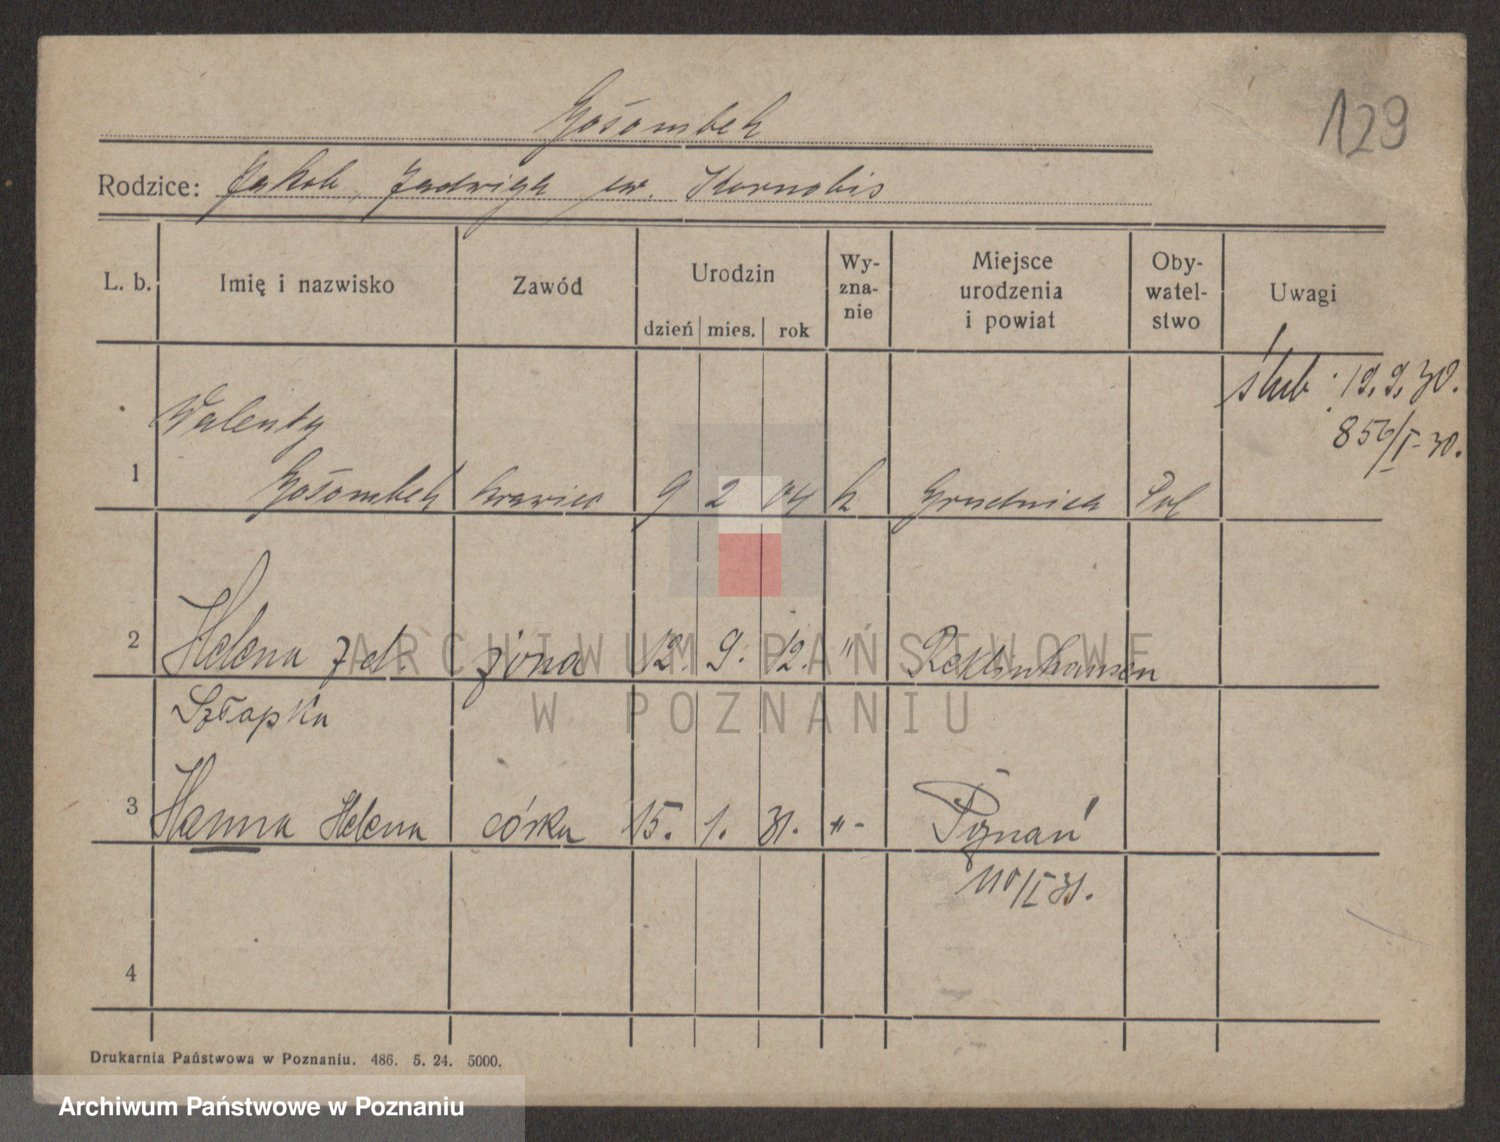 129
Gołombek
Rodzice: Jakób, Jadwiga ur. Kornobis
L. b. Imię i nazwisko Zawód Urodzin dzień mies. rok Wy-zna-nie Miejsce urodzenia i powiat Oby-watel-stwo Uwagi
ślub 19.9.30.
856/I-30.
Walenty
1 Gołombek krawiec 9 2 04 k Grudnica Pol
2 Helena Jad. żona 12. 9. 12. " Reklinhausen
Szłapka
3 Hanna Helena córka 15. 1. 31. -"- Poznań
110/I 31.
4
Drukarnia Państwowa w Poznaniu. 486. 5. 24. 5000.
ARCHIWUM PAŃSTWOWE
W POZNANIU
Archiwum Państwowe w Poznaniu